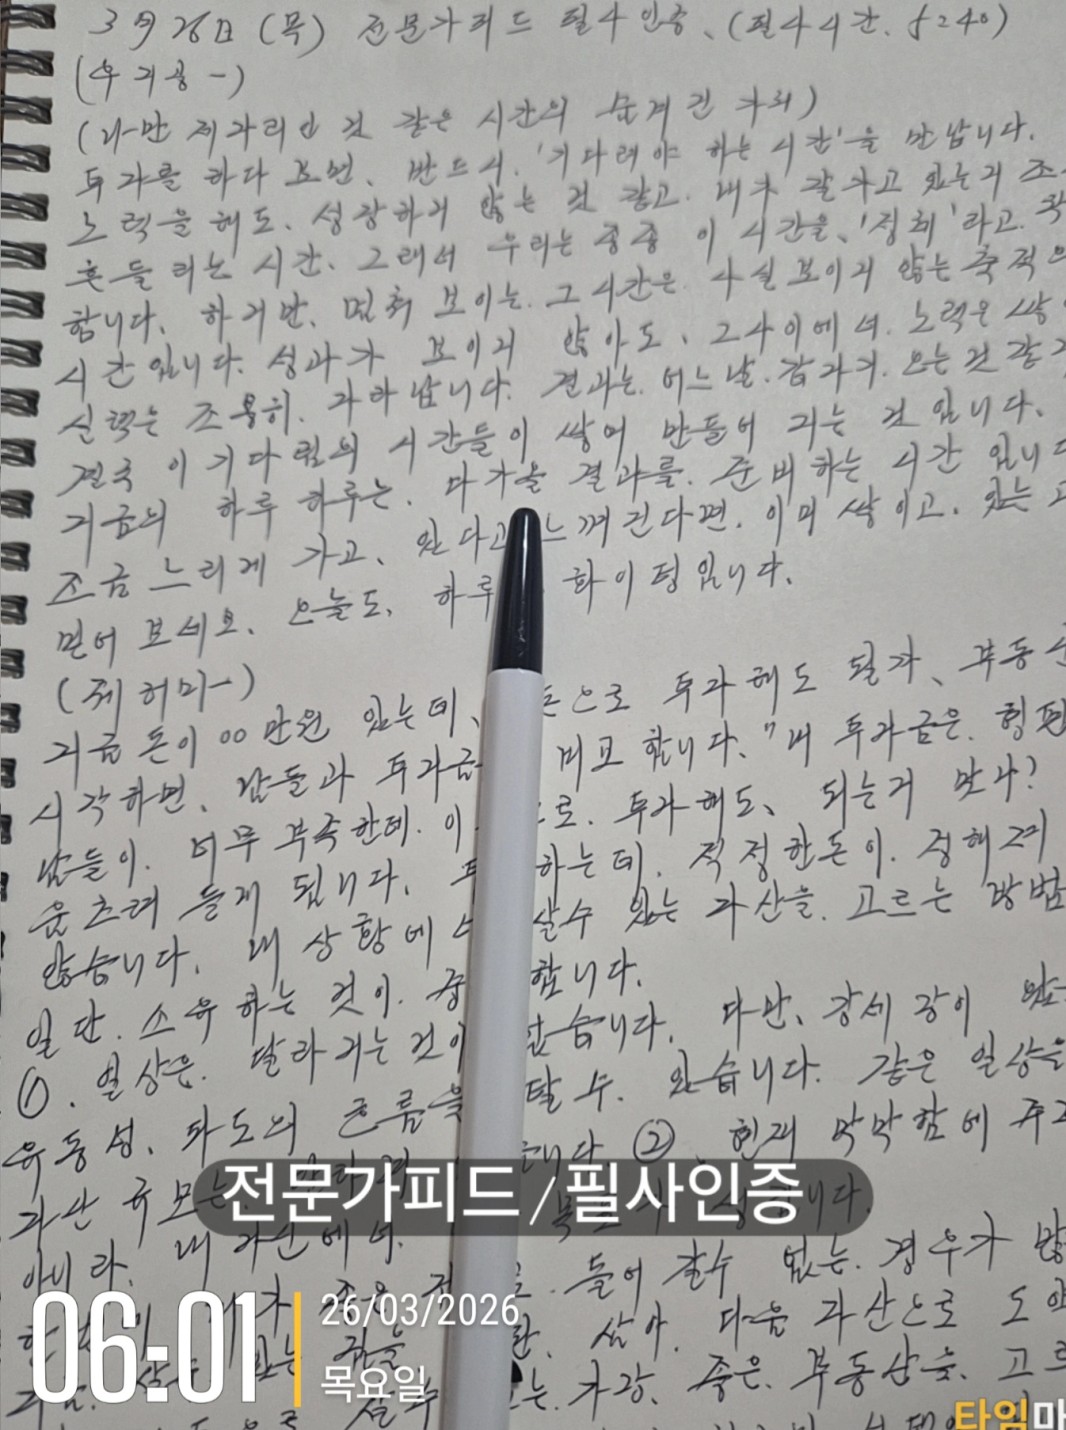 3월 26日 (목) 전문가피드 필사인증, (필사시간. 5:40)
(우지공-)
(나만 제자리인 것 같은 시간의 숨겨진 가치)
투자를 하다 보면, 반드시, '기다려야 하는 시간'을 만납니다.
노력을 해도, 성장하지 않는 것 같고, 내가 잘 가고 있는지 조
흔들리는 시간, 그래서 우리는 종종 이 시간을, '정체'라고 착
합니다, 하지만, 멈춰 보이는. 그 시간은. 사실 보이지 않는 축적의
시간입니다. 성과가 보이지 않아도, 그 사이에서. 노력은 쌓
실력는 조용히. 자라납니다. 결과는. 어느날. 갑자기. 오는 것 같지
결국 이 기다림의 시간들이 쌓여 만들어 지는 것 입니다.
지금의 하루 하루는. 다가올 결과를. 준비하는 시간 입니다
조금 느리게 가고, 있다고 느껴진다면. 이미 쌓이고, 있는 고
믿어 보세요. 오늘도. 하루 화이팅입니다.
지금 돈이 00만원 있는데, 돈으로 투자해도 될까, 부동산
시작하면, 남들과 투자금 비교 합니다. "내 투자금은. 형편
남들이. 너무 부족한데. 이 로. 투자해도, 되는거 맞나?
움츠려 들게 됩니다, 투 하는데. 적정한돈이. 정해져
않습니다, 내 상황에 살수 있는 자산을. 고르는 방법
일단. 소유하는 것이. 중 합니다.
①. 일상은. 달라지는 것이 없습니다, 다만, 강세장이 왔
유동성, 파도의 흐름을 탈 수. 있습니다. 같은 일상을
자산 규모는 니다. ②, 현재 막막함에 주저
아니라, 내 자산에서. 목표 니다.
들어 갈수 없는. 경우가 많
삼아, 다음 자산으로 도약
가장, 좋은, 부동산을, 고르
전문가피드/필사인증
06:01
26/03/2026
목요일
타임마